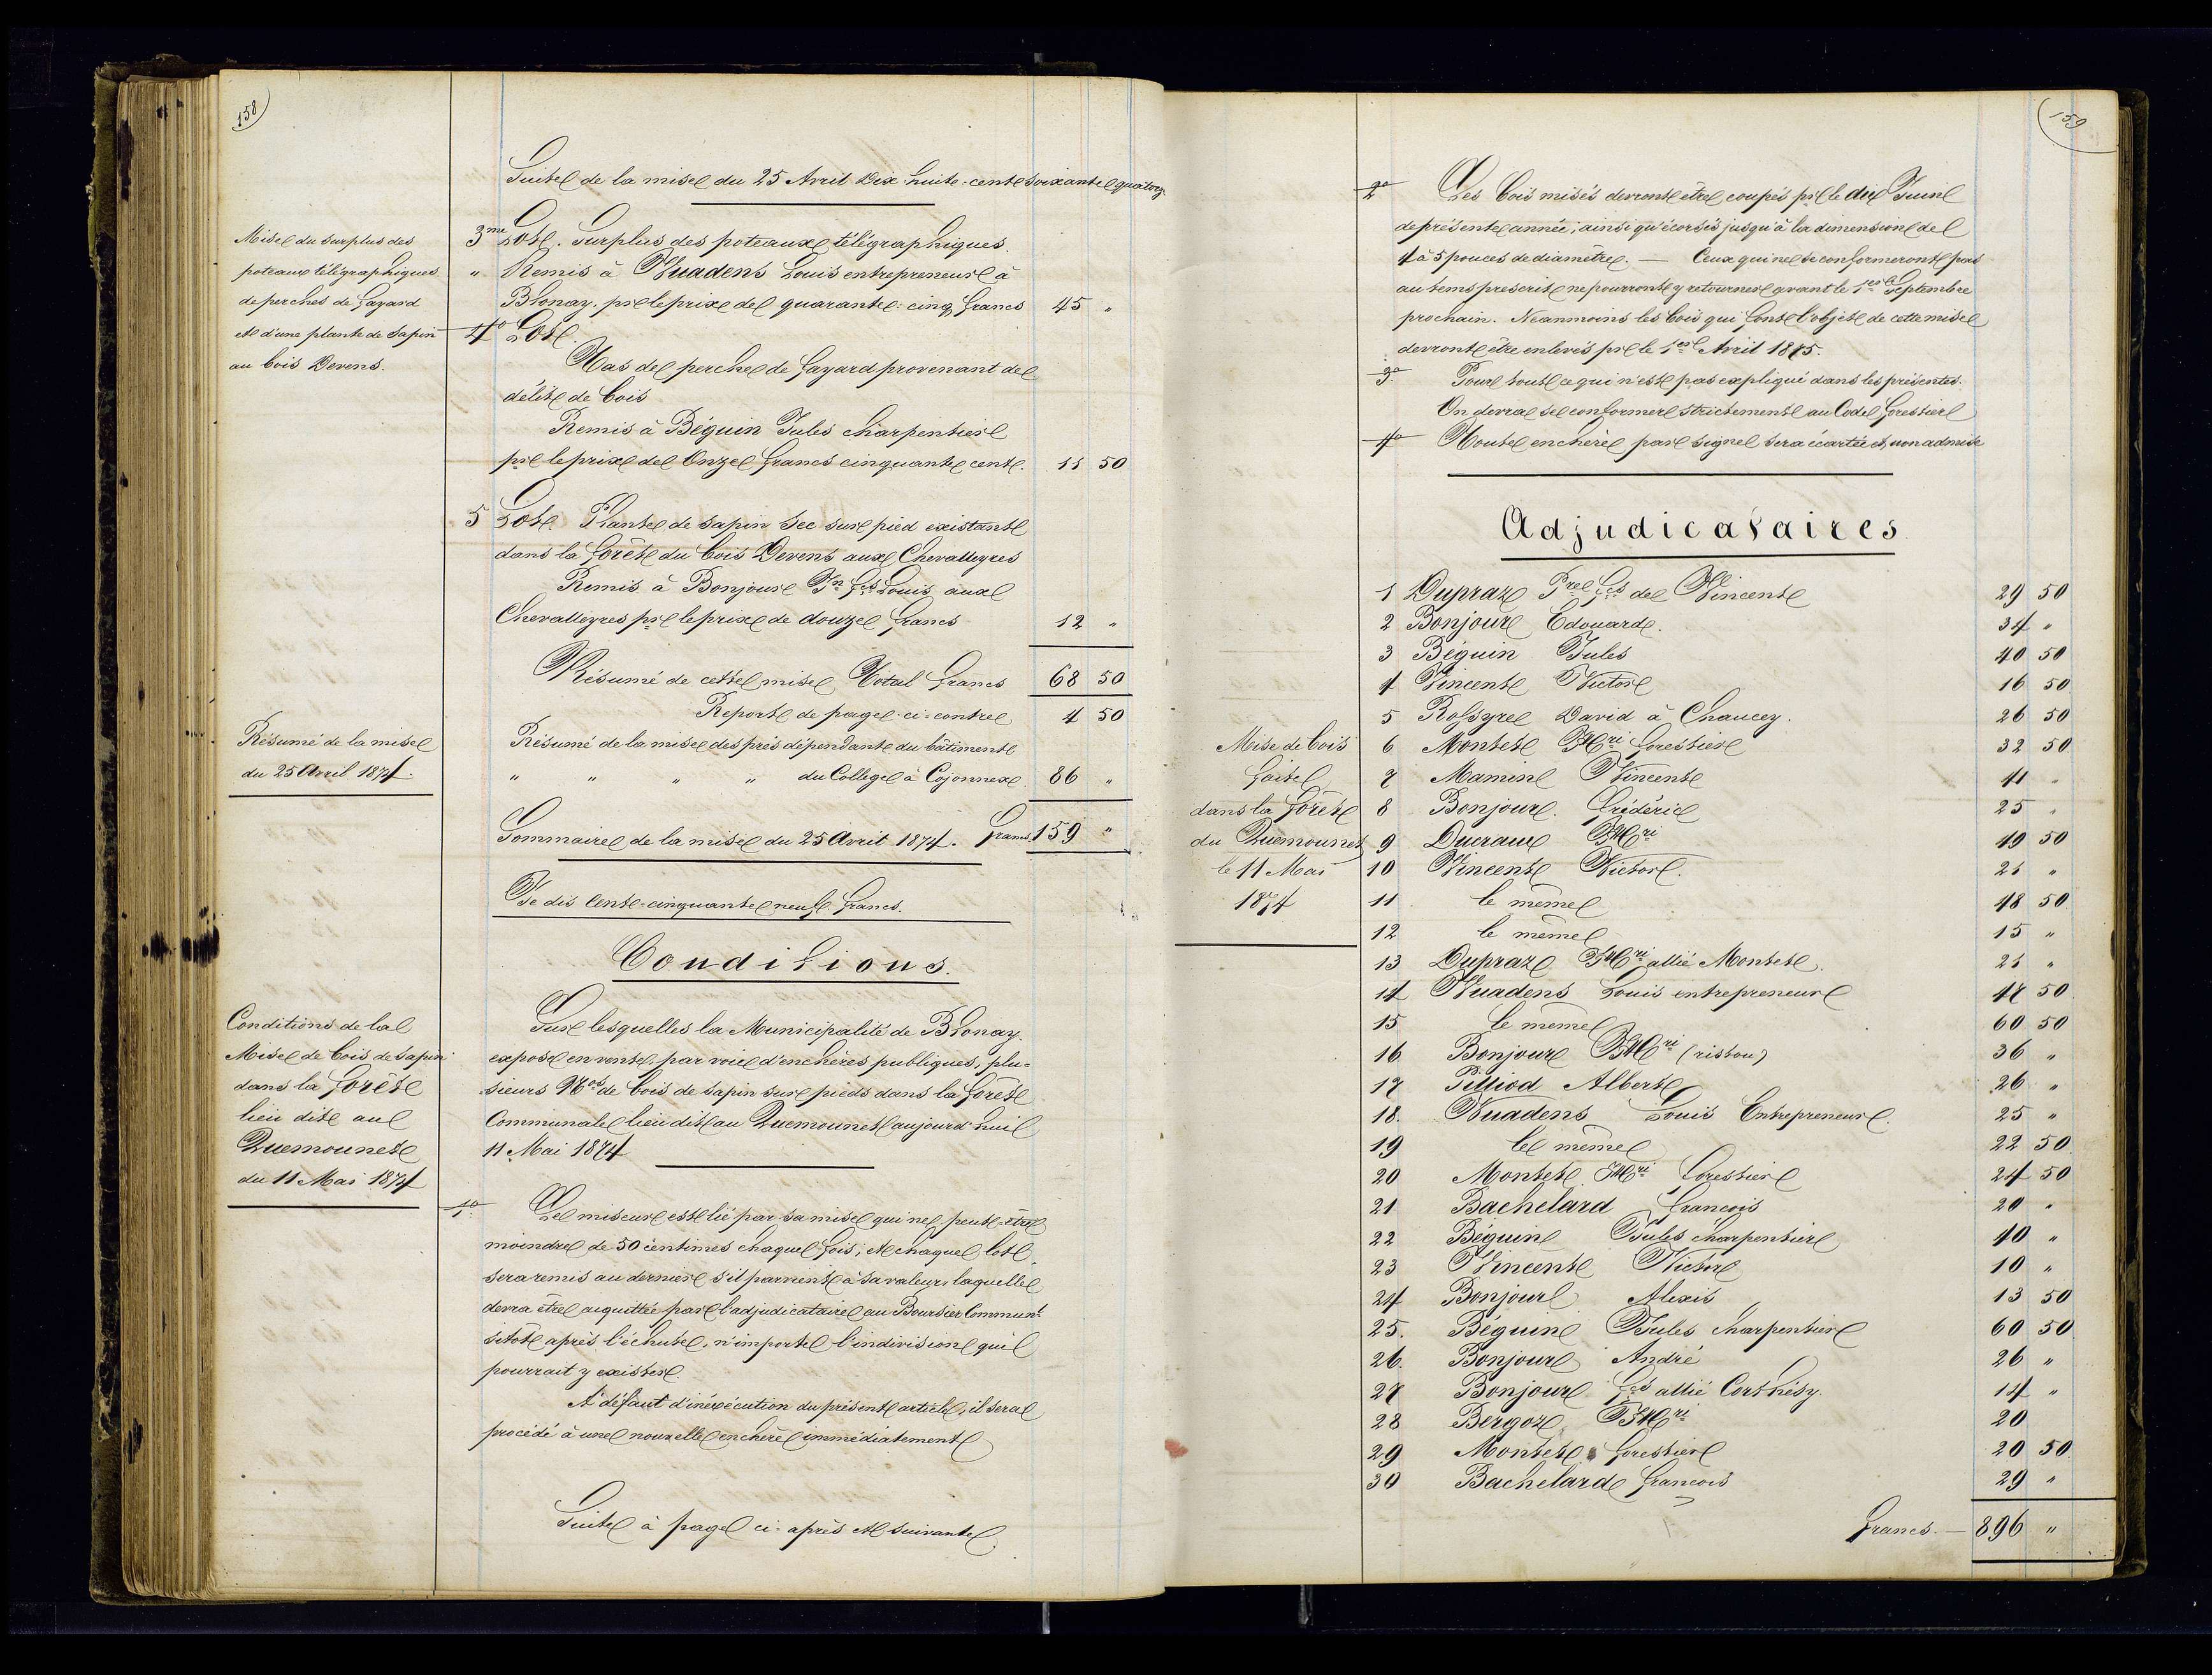 158
Suite de la mise du 25 Avril Dix-huit-cent soixante quatorze
Mise du surplus des
poteaux télégraphiques
de perches de fayard
et d'une plante de Sapin
au bois Devens.
3me Lot. Surplus des poteaux télégraphiques.
" Remis à Vuadens Louis entrepreneur à
Blonay. pr le prix de quarante-cinq francs 45 "
4o Lot.
Tas de perches de fayard provenant de
délit de bois
Remis à Béguin Jules charpentier
pr le prix de Onze francs cinquante cent. 11 50
5 Lot. Plante de sapin sec sur pied existant
dans la forêt du bois Devens aux Chevalleyres
Remis à Bonjour Jn fçs Louis aux
Chevalleyres pr le prix de douze francs 12 "
Résumé de cette mise Total francs 68 50
Report de page ci-contre 4 50
Résumé de la mise
du 25 Avril 1874.
Résumé de la mise des prés dépendant du bâtiment
" " " " du College à Cojonnex. 86 "
Sommaire de la mise du 25 Avril 1874. francs 159 "
Je dis Cent-cinquante neuf francs.
Conditions.
Conditions de la
Mise de bois de sapin
dans la forêt
lieu dit au
Quemounet
du 11 Mai 1874
Sur lesquelles la Municipalité de Blonay
expose en vente, par voie d'enchères publiques, plu-
sieurs Nos de bois de sapin sur pieds dans la forêt
Communale lieu dit au Quemounet aujourd'hui
11 Mai 1874
1o Le miseur est lié par sa mise qui ne peut-être
moindre de 50 centimes chaque fois; et chaque lot
sera remis au dernier s'il parvient à sa valeur, laquelle
devra être acquittée par l'adjudicataire au Boursier Communl
sitôt après l'échute, n'importe l'indivision qui
pourrait y exister.
A défaut d'inéxécution du présent article, il sera
procédé à une nouvelle enchère immédiatement
Suite à page ci-après et suivante
159
2o Les bois misés devront être coupés pr le dix Juin
de présente année, ainsi qu'écorsés jusqu'à la dimension de
4 à 5 pouces de diamètre. — Ceux qui ne se conformeront pas
au tems prescrit ne pourront y retourner avant le 1er Septembre
prochain. Neanmoins les bois qui font l'objet de cette mise
devront être enlevés pr le 1er Avril 1875.
3o Pour tout ce qui n'est pas expliqué dans les présentes.
On devra se conformer strictement au Code forestier
4o Toute enchère par signe sera écartée et non admise
Adjudicataires.
1 Dupraz Pre fçs de Vincent 29 50
2 Bonjour Edouard. 34 "
3 Béguin Jules 40 50
4 Vincent Victor 16 50
5 Rossyre David à Chaucey. 26 50
Mise de bois
faite
dans la forêt
du Quemounet
le 11 Mai
1874
6 Montet Hri forestier 32 50
7 Mamin Vincent 41 "
8 Bonjour. Frédéric 25 "
9 Ducraux Hri 49 50
10 Vincent Victor. 21 "
11 le même 48 50
12 le même 15 "
13 Dupraz Hri allié Montet. 21 "
14 Vuadens Louis entrepreneur 47 50
15 le même 60 50
16 Bonjour Hri (riston) 36 "
17 Pilliod Albert 26 "
18. Vuadens Louis Entrepreneur. 25 "
19 le même 22 50
20 Montet Hri forestier 24 50
21 Bachelard François 20 "
22 Béguin Jules charpentier 40 "
23 Vincent Victor 10 "
24 Bonjour Alexis 13 50
25. Béguin Jules charpentier 60 50
26. Bonjour André 26 "
27 Bonjour fçs allié Corthésy. 14 "
28 Bergoz Hri 20
29 Montet forestier 20 50
30 Bachelard François 29 "
francs. — 896 "